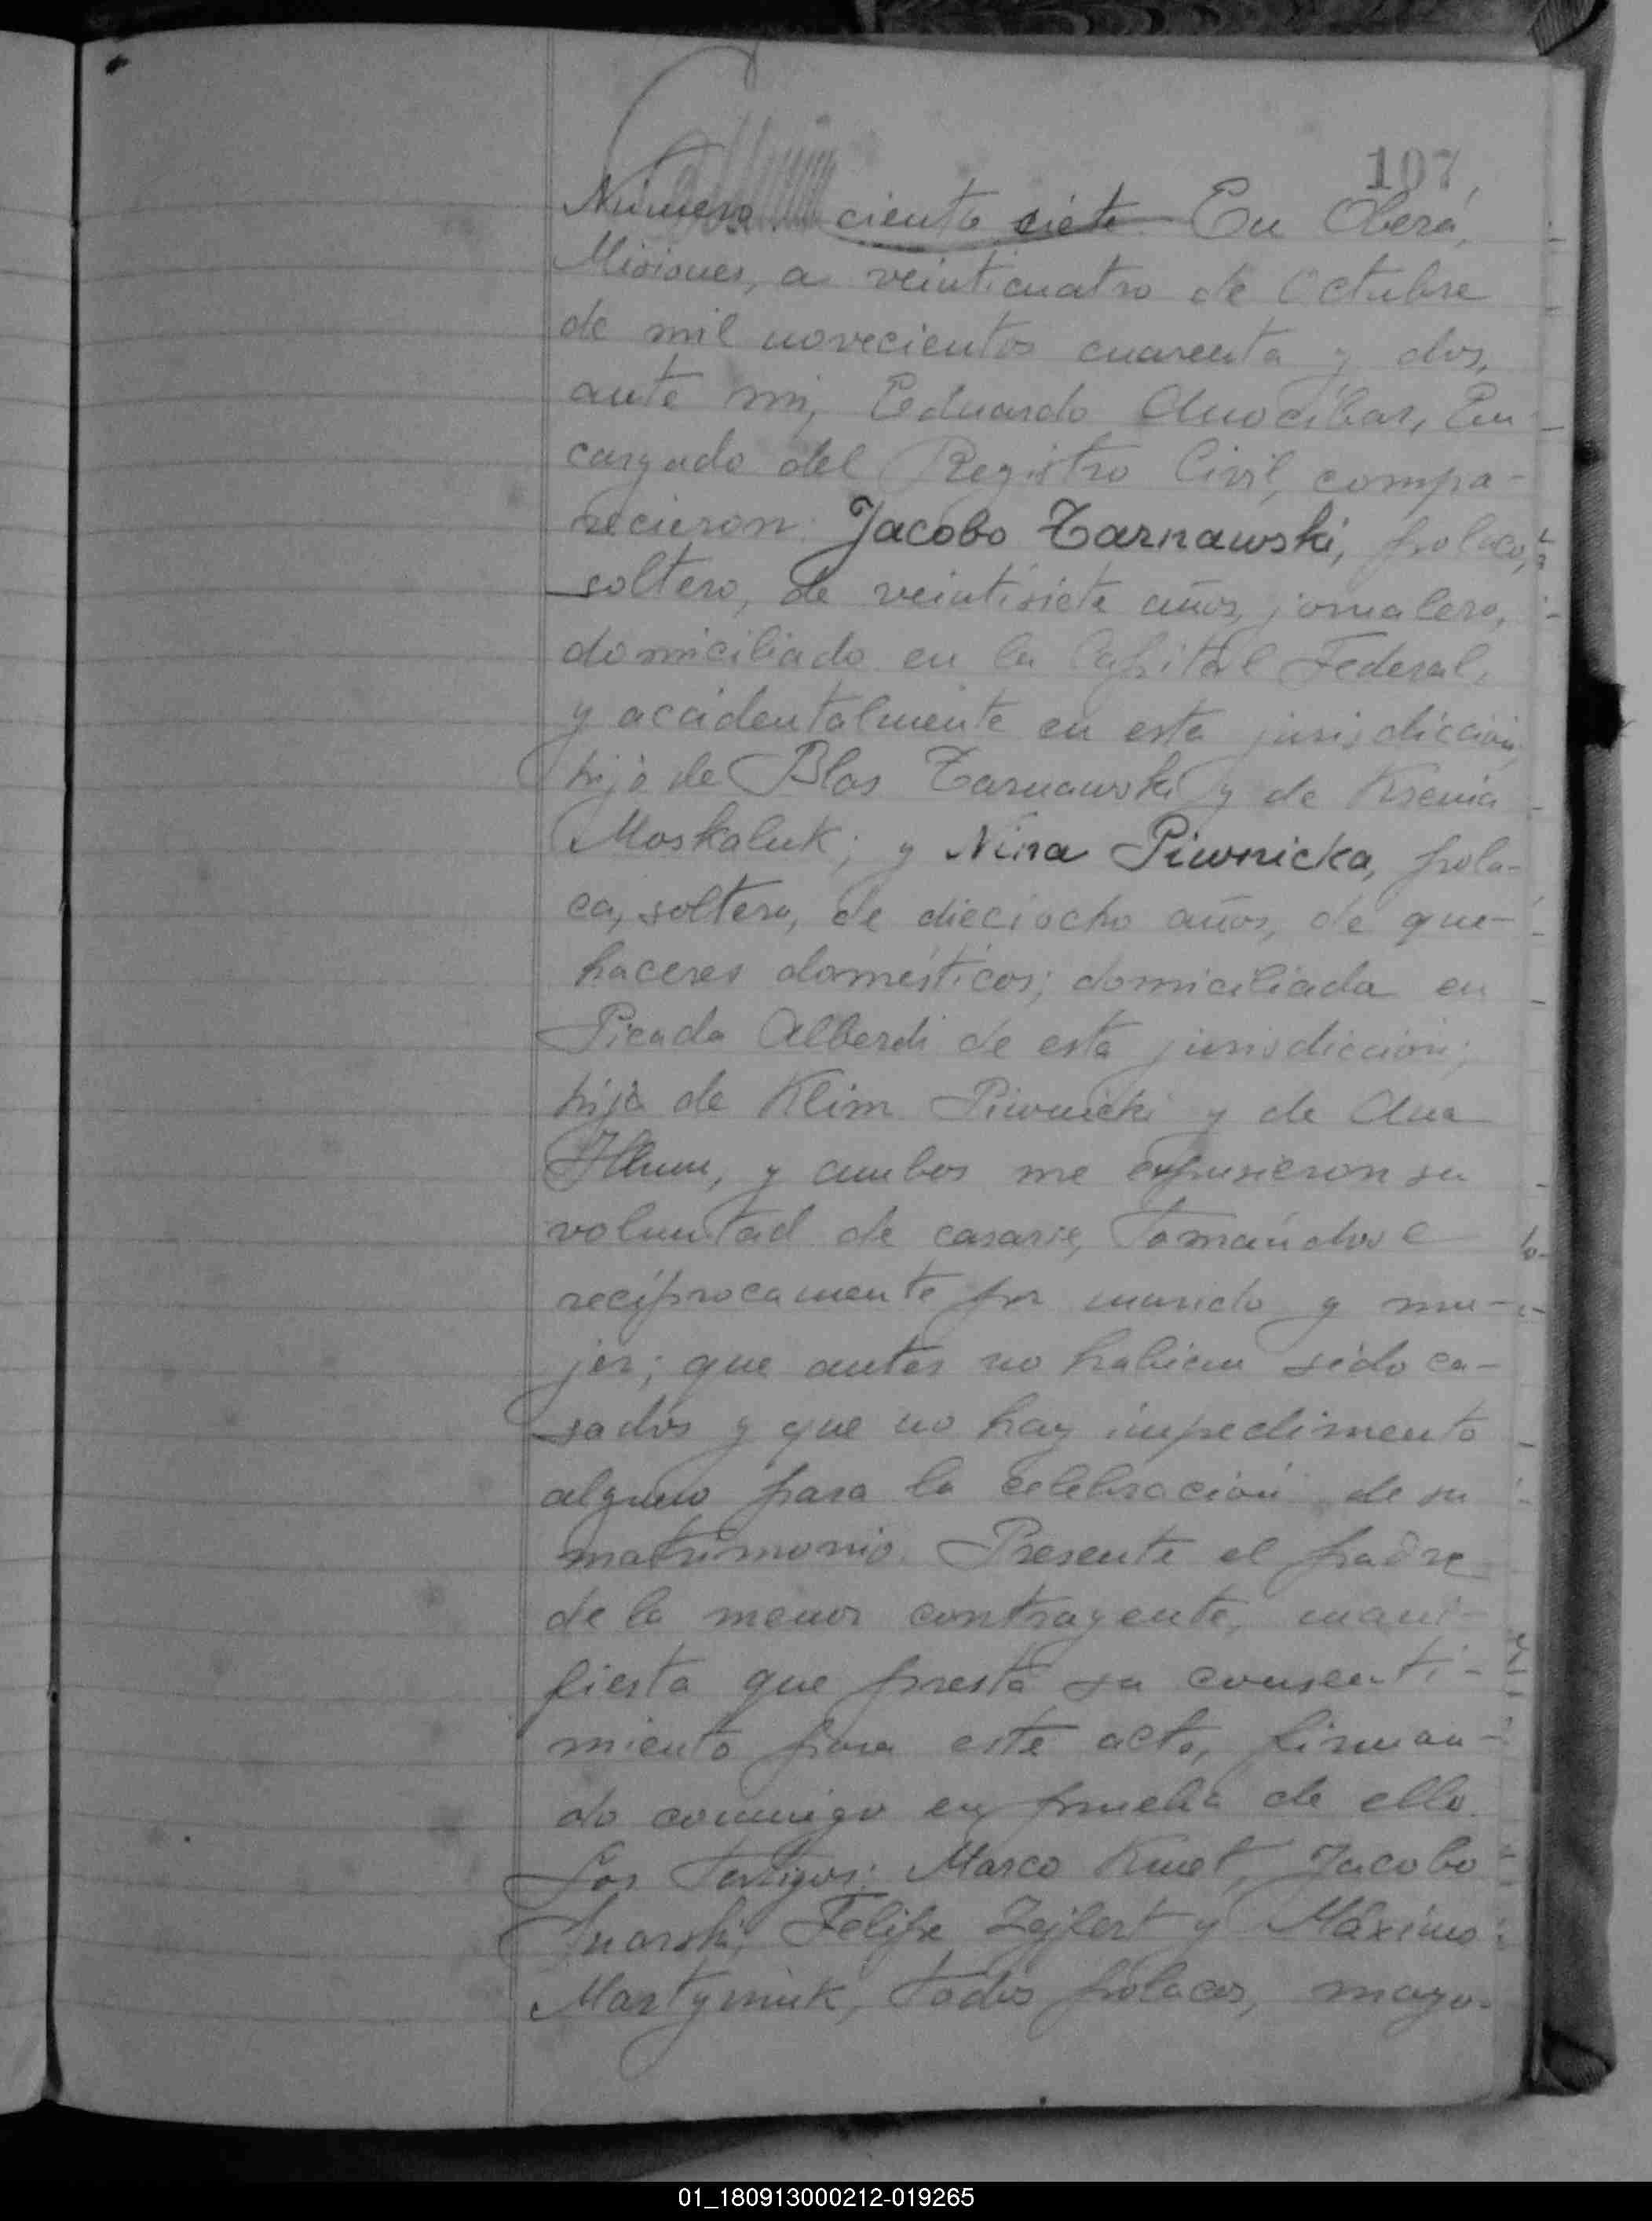 107,
Número ciento siete En Oberá,
Misiones, a veinticuatro de Octubre
de mil novecientos cuarenta y dos,
ante mi, Eduardo Anocíbar, En-
cargado del Registro Civil, compa-
recieron: Jacobo Tarnawski, polaco,
soltero, de veintisiete años, jornalero,
domiciliado en la Capital Federal,
y accidentalmente en esta jurisdicción,
hijo de Blas Tarnawski y de Ksenia
Moskaluk; y Nina Piwnicka, pola-
ca, soltera, de dieciocho años, de que-
haceres domésticos; domiciliada en
Picada Alberdi de esta jurisdicción;
hija de Klim Piwnicki y de Ana
y ambos me expusieron su
voluntad de casarse, tomándose
recíprocamente por marido y mu-
jer; que antes no habían sido ca-
sados y que no hay impedimento
alguno para la celebración de su
matrimonio. Presente el padre
de la menor contrayente, mani-
fiesta que presta su consenti-
miento para este acto, firman-
do conmigo en prueba de ello.
Los testigos: Marco Kmet, Jacobo
Felipe y Máximo
Martyniuk, todos polacos, mayo-
01_180913000212-019265